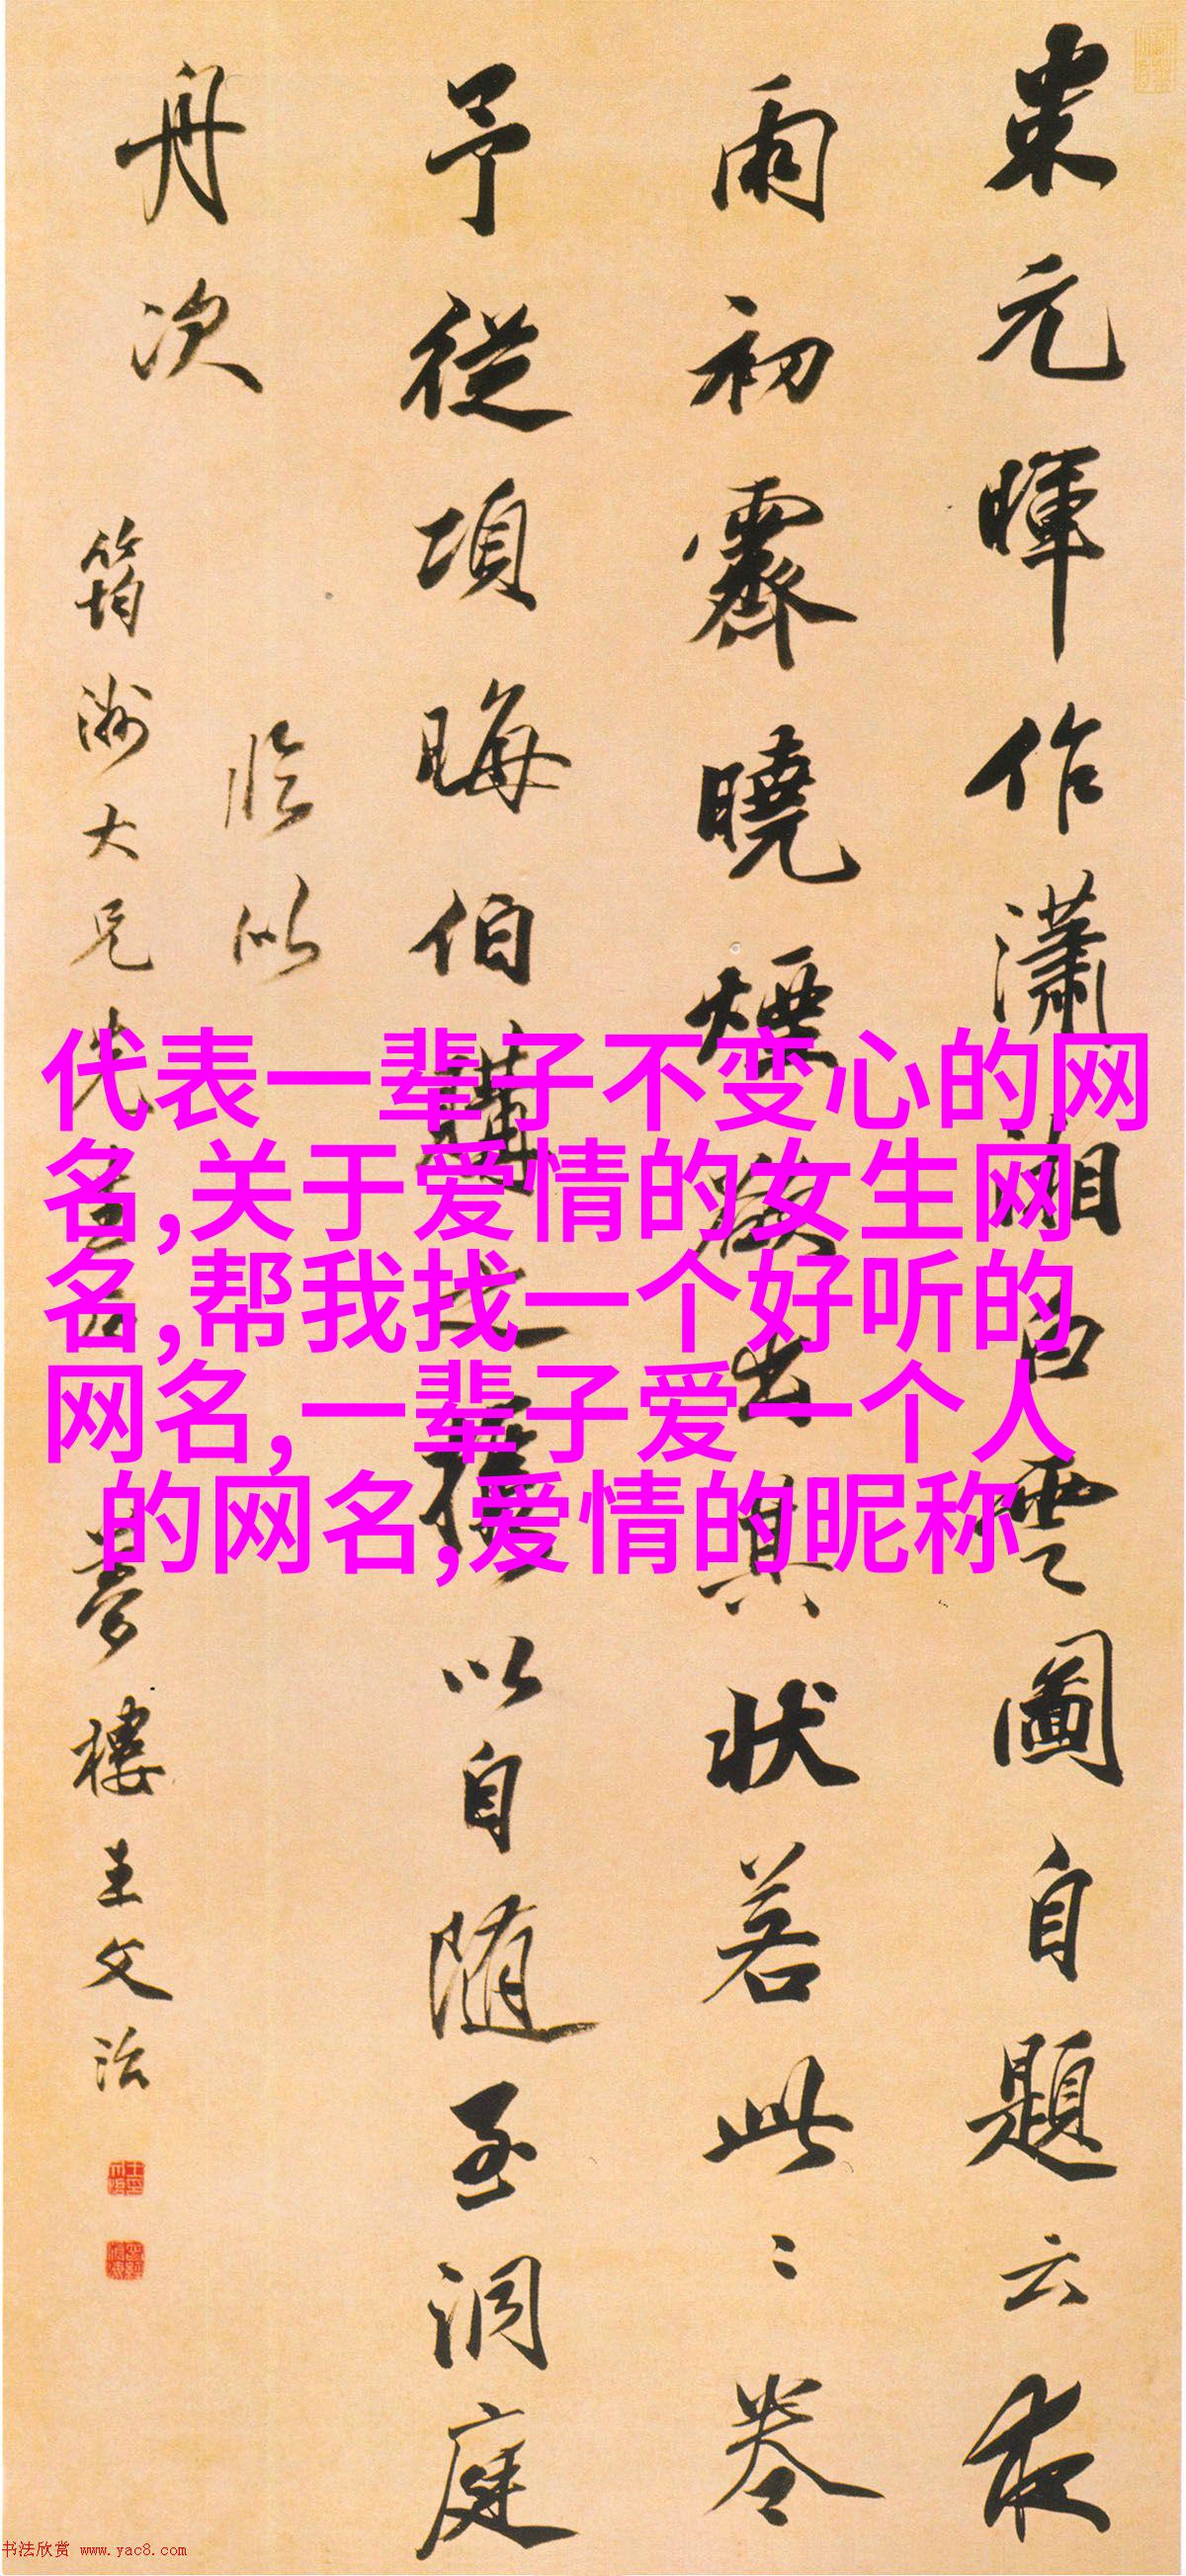 米元暉作瀟湘白雲圖自題云夜
雨初霽曉煙欲出其狀若此〻卷
予從項晦伯購之攜以自隨至洞庭
舟次
臨似
筠洲大兄先生 夢樓王文治
代表一辈子不变心的网
名,关于爱情的女生网
名,帮我找一个好听的
网名,一辈子爱一个人
的网名,爱情的昵称
书法欣赏 www.yac8.com